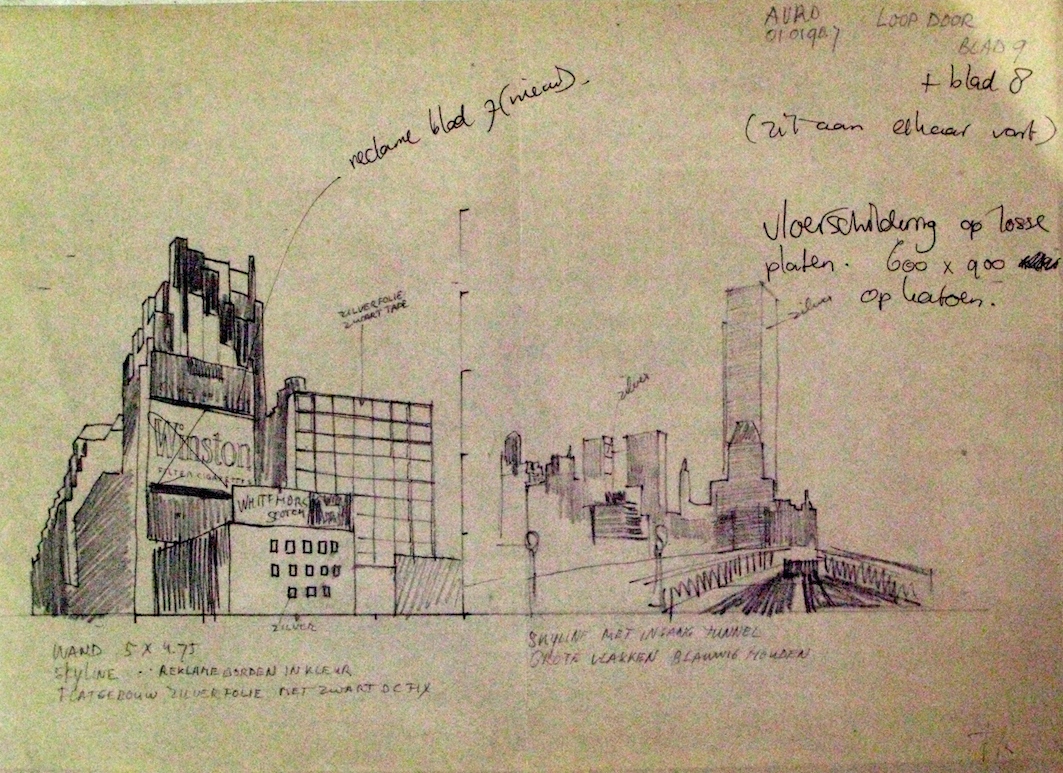 AVRO LOOP DOOR
BLAD 9
+ blad 8
(zit aan elkaar vast)
reclame blad 7 (nieuw).
vloerschildering op losse
platen. 600 x 900
op katoen.
zilver
ZILVERFOLIE
ZWART TAPE
zilver
Winston
FILTER CIGARETTES
WHITE HORSE
SCOTCH
ZILVER
WAND 5 X 4.75
SKYLINE REKLAMEBORDEN IN KLEUR
FLATGEBOUW ZILVERFOLIE MET ZWART DC FIX
SKYLINE MET INGANG TUNNEL
GROTE VLAKKEN BLAUWIG HOUDEN